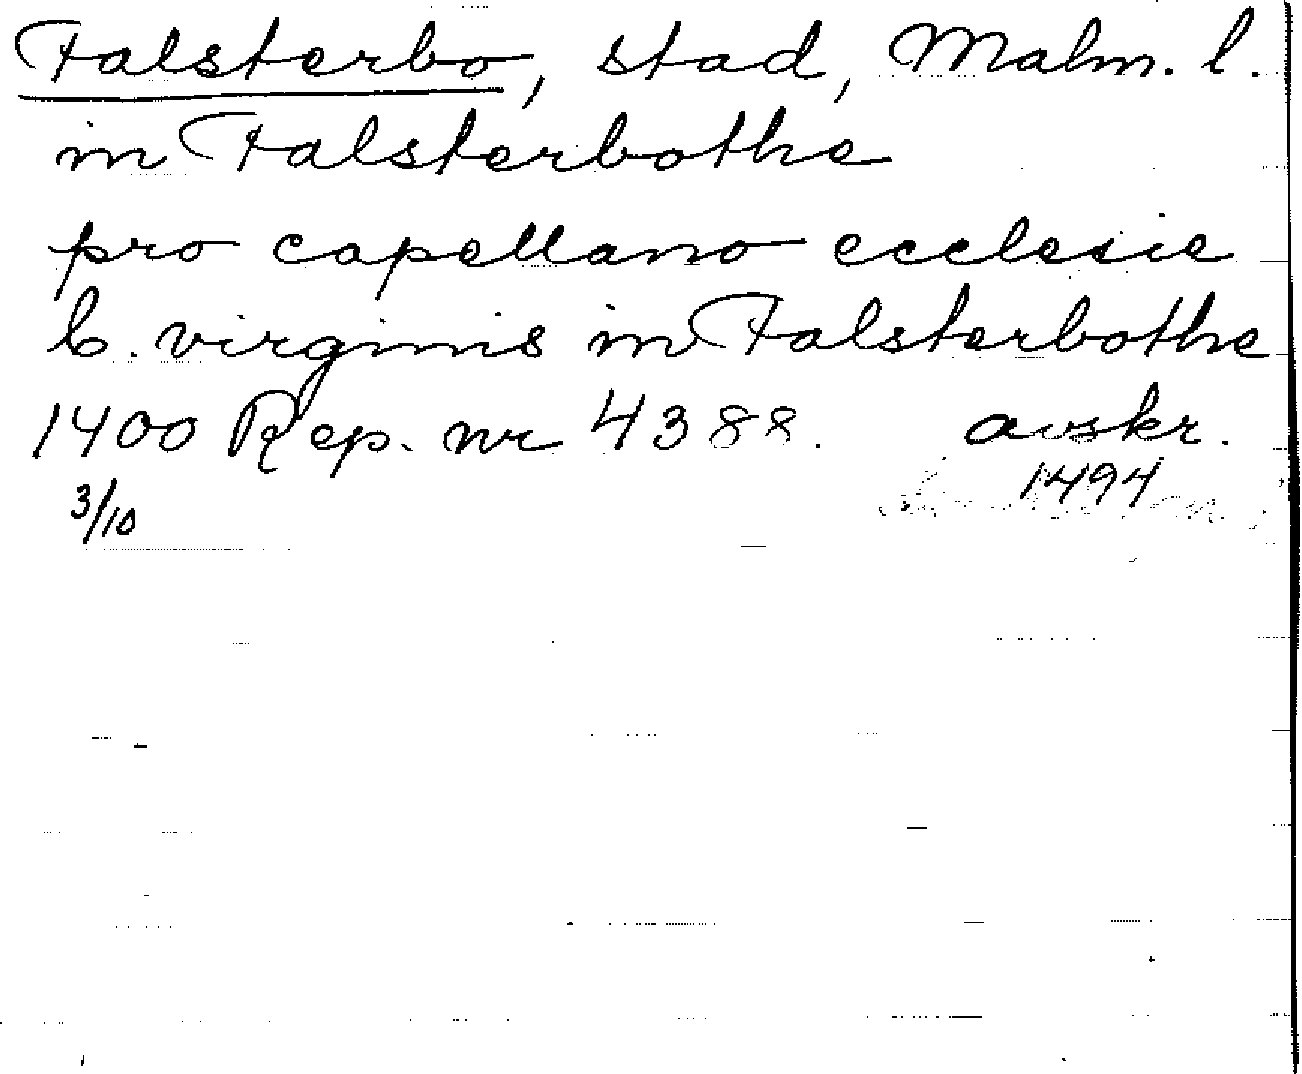 Falsterbo, stad, Malm. l.
in Falsterbothe
pro capellano ecclesie
b. virginis in Falsterbothe
1400 Rep. nr 4388. avskr.
1494
3/10